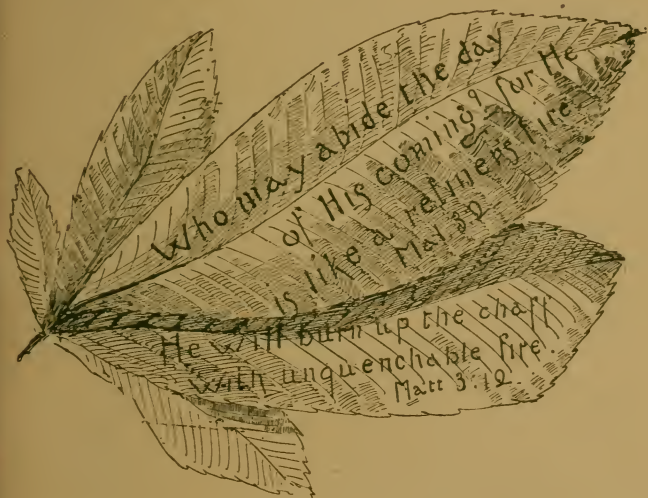 Who may abide the day
of His coming? for He
is like a refiners fire
Mal 3:2
He will burn up the chaff
with unquenchable fire.
Matt 3:12